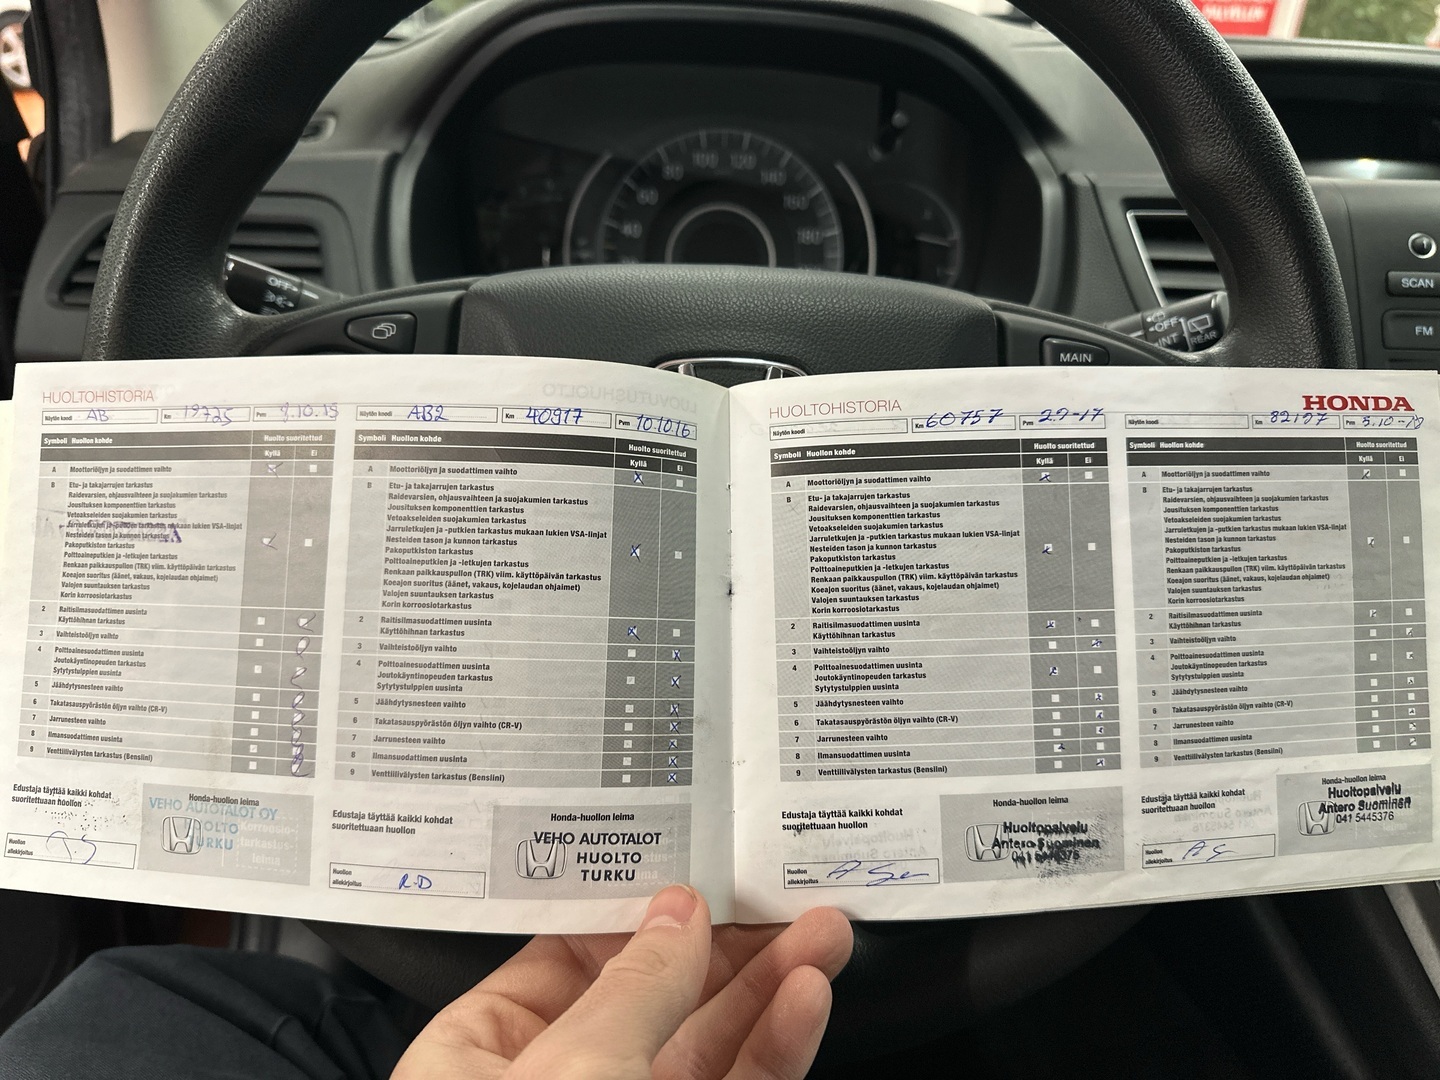 OFF
OFF
INT
REAR
MAIN
SCAN
FM
40
60
80
100
120
140
160
180
HUOLTOHISTORIA
Näytön koodi AB Km 19725 Pvm 10.15
Symboli Huollon kohde Huolto suoritettud
Kyllä Ei
A Moottoriöljyn ja suodattimen vaihto
B Etu- ja takajarrujen tarkastus
Raidevarsien, ohjausvaihteen ja suojakumien tarkastus
Jousituksen komponenttien tarkastus
Vetoakseleiden suojakumien tarkastus
Jarruletkujen ja -putkien tarkastus mukaan lukien VSA-linjat
Nesteiden tason ja kunnon tarkastus
Pakoputkiston tarkastus
Polttoaineputkien ja -letkujen tarkastus
Renkaan paikkauspullon (TRK) viim. käyttöpäivän tarkastus
Koeajon suoritus (äänet, vakaus, kojelaudan ohjaimet)
Valojen suuntauksen tarkastus
Korin korroosiotarkastus
2 Raitisilmasuodattimen uusinta
Käyttöhihnan tarkastus
3 Vaihteistoöljyn vaihto
4 Polttoainesuodattimen uusinta
Joutokäyntinopeuden tarkastus
Sytytystulppien uusinta
5 Jäähdytysnesteen vaihto
6 Takatasauspyörästön öljyn vaihto (CR-V)
7 Jarrunesteen vaihto
8 Ilmansuodattimen uusinta
9 Venttiilivälysten tarkastus (Bensiini)
Edustaja täyttää kaikki kohdat
suoritettuaan huollon
Honda-huollon leima
VEHO AUTOTALOT OY
HUOLTO
TURKU
Huollon
allekirjoitus
Näytön koodi AB2 Km 40917 Pvm 10.10.16
Symboli Huollon kohde Huolto suoritettud
Kyllä Ei
A Moottoriöljyn ja suodattimen vaihto
B Etu- ja takajarrujen tarkastus
Raidevarsien, ohjausvaihteen ja suojakumien tarkastus
Jousituksen komponenttien tarkastus
Vetoakseleiden suojakumien tarkastus
Jarruletkujen ja -putkien tarkastus mukaan lukien VSA-linjat
Nesteiden tason ja kunnon tarkastus
Pakoputkiston tarkastus
Polttoaineputkien ja -letkujen tarkastus
Renkaan paikkauspullon (TRK) viim. käyttöpäivän tarkastus
Koeajon suoritus (äänet, vakaus, kojelaudan ohjaimet)
Valojen suuntauksen tarkastus
Korin korroosiotarkastus
2 Raitisilmasuodattimen uusinta
Käyttöhihnan tarkastus
3 Vaihteistoöljyn vaihto
4 Polttoainesuodattimen uusinta
Joutokäyntinopeuden tarkastus
Sytytystulppien uusinta
5 Jäähdytysnesteen vaihto
6 Takatasauspyörästön öljyn vaihto (CR-V)
7 Jarrunesteen vaihto
8 Ilmansuodattimen uusinta
9 Venttiilivälysten tarkastus (Bensiini)
Edustaja täyttää kaikki kohdat
suoritettuaan huollon
Honda-huollon leima
VEHO AUTOTALOT
HUOLTO
TURKU
Huollon
allekirjoitus R-D
HUOLTOHISTORIA
Näytön koodi Km 60757 Pvm
Symboli Huollon kohde Huolto suoritettud
Kyllä Ei
A Moottoriöljyn ja suodattimen vaihto
B Etu- ja takajarrujen tarkastus
Raidevarsien, ohjausvaihteen ja suojakumien tarkastus
Jousituksen komponenttien tarkastus
Vetoakseleiden suojakumien tarkastus
Jarruletkujen ja -putkien tarkastus mukaan lukien VSA-linjat
Nesteiden tason ja kunnon tarkastus
Pakoputkiston tarkastus
Polttoaineputkien ja -letkujen tarkastus
Renkaan paikkauspullon (TRK) viim. käyttöpäivän tarkastus
Koeajon suoritus (äänet, vakaus, kojelaudan ohjaimet)
Valojen suuntauksen tarkastus
Korin korroosiotarkastus
2 Raitisilmasuodattimen uusinta
Käyttöhihnan tarkastus
3 Vaihteistoöljyn vaihto
4 Polttoainesuodattimen uusinta
Joutokäyntinopeuden tarkastus
Sytytystulppien uusinta
5 Jäähdytysnesteen vaihto
6 Takatasauspyörästön öljyn vaihto (CR-V)
7 Jarrunesteen vaihto
8 Ilmansuodattimen uusinta
9 Venttiilivälysten tarkastus (Bensiini)
Edustaja täyttää kaikki kohdat
suoritettuaan huollon
Honda-huollon leima
Huoltopalvelu
Antero Suominen
041 5445376
Huollon
allekirjoitus
HONDA
Näytön koodi Km Pvm
Symboli Huollon kohde Huolto suoritettud
Kyllä Ei
A Moottoriöljyn ja suodattimen vaihto
B Etu- ja takajarrujen tarkastus
Raidevarsien, ohjausvaihteen ja suojakumien tarkastus
Jousituksen komponenttien tarkastus
Vetoakseleiden suojakumien tarkastus
Jarruletkujen ja -putkien tarkastus mukaan lukien VSA-linjat
Nesteiden tason ja kunnon tarkastus
Pakoputkiston tarkastus
Polttoaineputkien ja -letkujen tarkastus
Renkaan paikkauspullon (TRK) viim. käyttöpäivän tarkastus
Koeajon suoritus (äänet, vakaus, kojelaudan ohjaimet)
Valojen suuntauksen tarkastus
Korin korroosiotarkastus
2 Raitisilmasuodattimen uusinta
Käyttöhihnan tarkastus
3 Vaihteistoöljyn vaihto
4 Polttoainesuodattimen uusinta
Joutokäyntinopeuden tarkastus
Sytytystulppien uusinta
5 Jäähdytysnesteen vaihto
6 Takatasauspyörästön öljyn vaihto (CR-V)
7 Jarrunesteen vaihto
8 Ilmansuodattimen uusinta
9 Venttiilivälysten tarkastus (Bensiini)
Edustaja täyttää kaikki kohdat
suoritettuaan huollon
Honda-huollon leima
Huoltopalvelu
Antero Suominen
041 5445376
Huollon
allekirjoitus